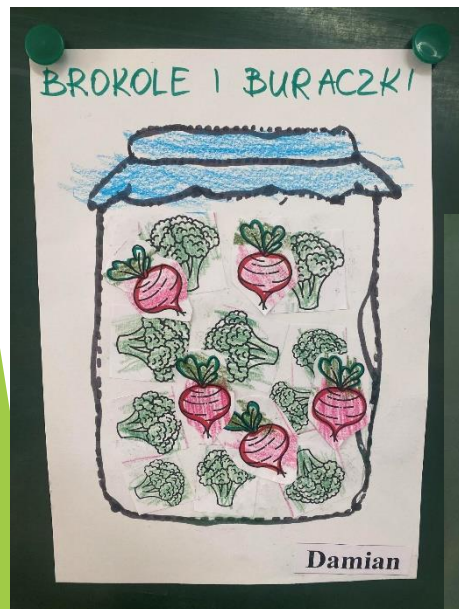 BROKOLE I BURACZKI
Damian